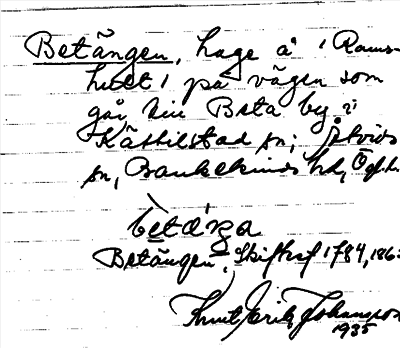 Betängen, hage å 'Rams-
hult' på vägen som
går till Beta by i
Kättilstad sn; Åtvids
sn, Bankekinds hd, Ögl.
betäŋa
Betängen, Skifteskf 1784, 186
Knut Erik Johansson
1935